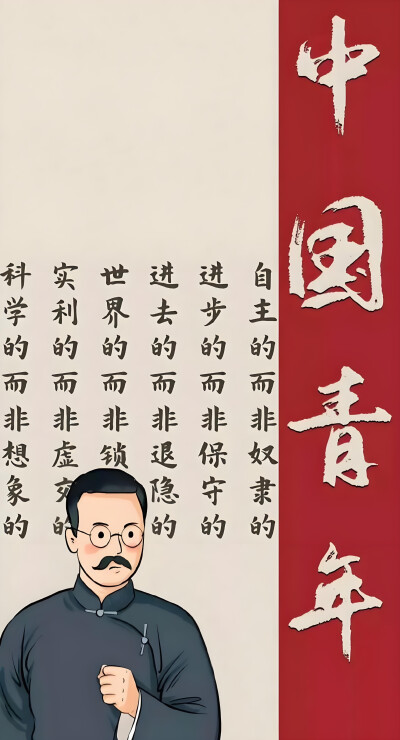 中国青年
自主的而非奴隶的
进步的而非保守的
进去的而非退隐的
世界的而非锁
实利的而非虚文的
科学的而非想象的